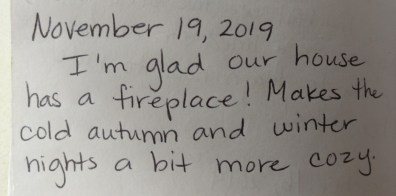 November 19, 2019
I'm glad our house
has a fireplace! Makes the
cold autumn and winter
nights a bit more cozy.